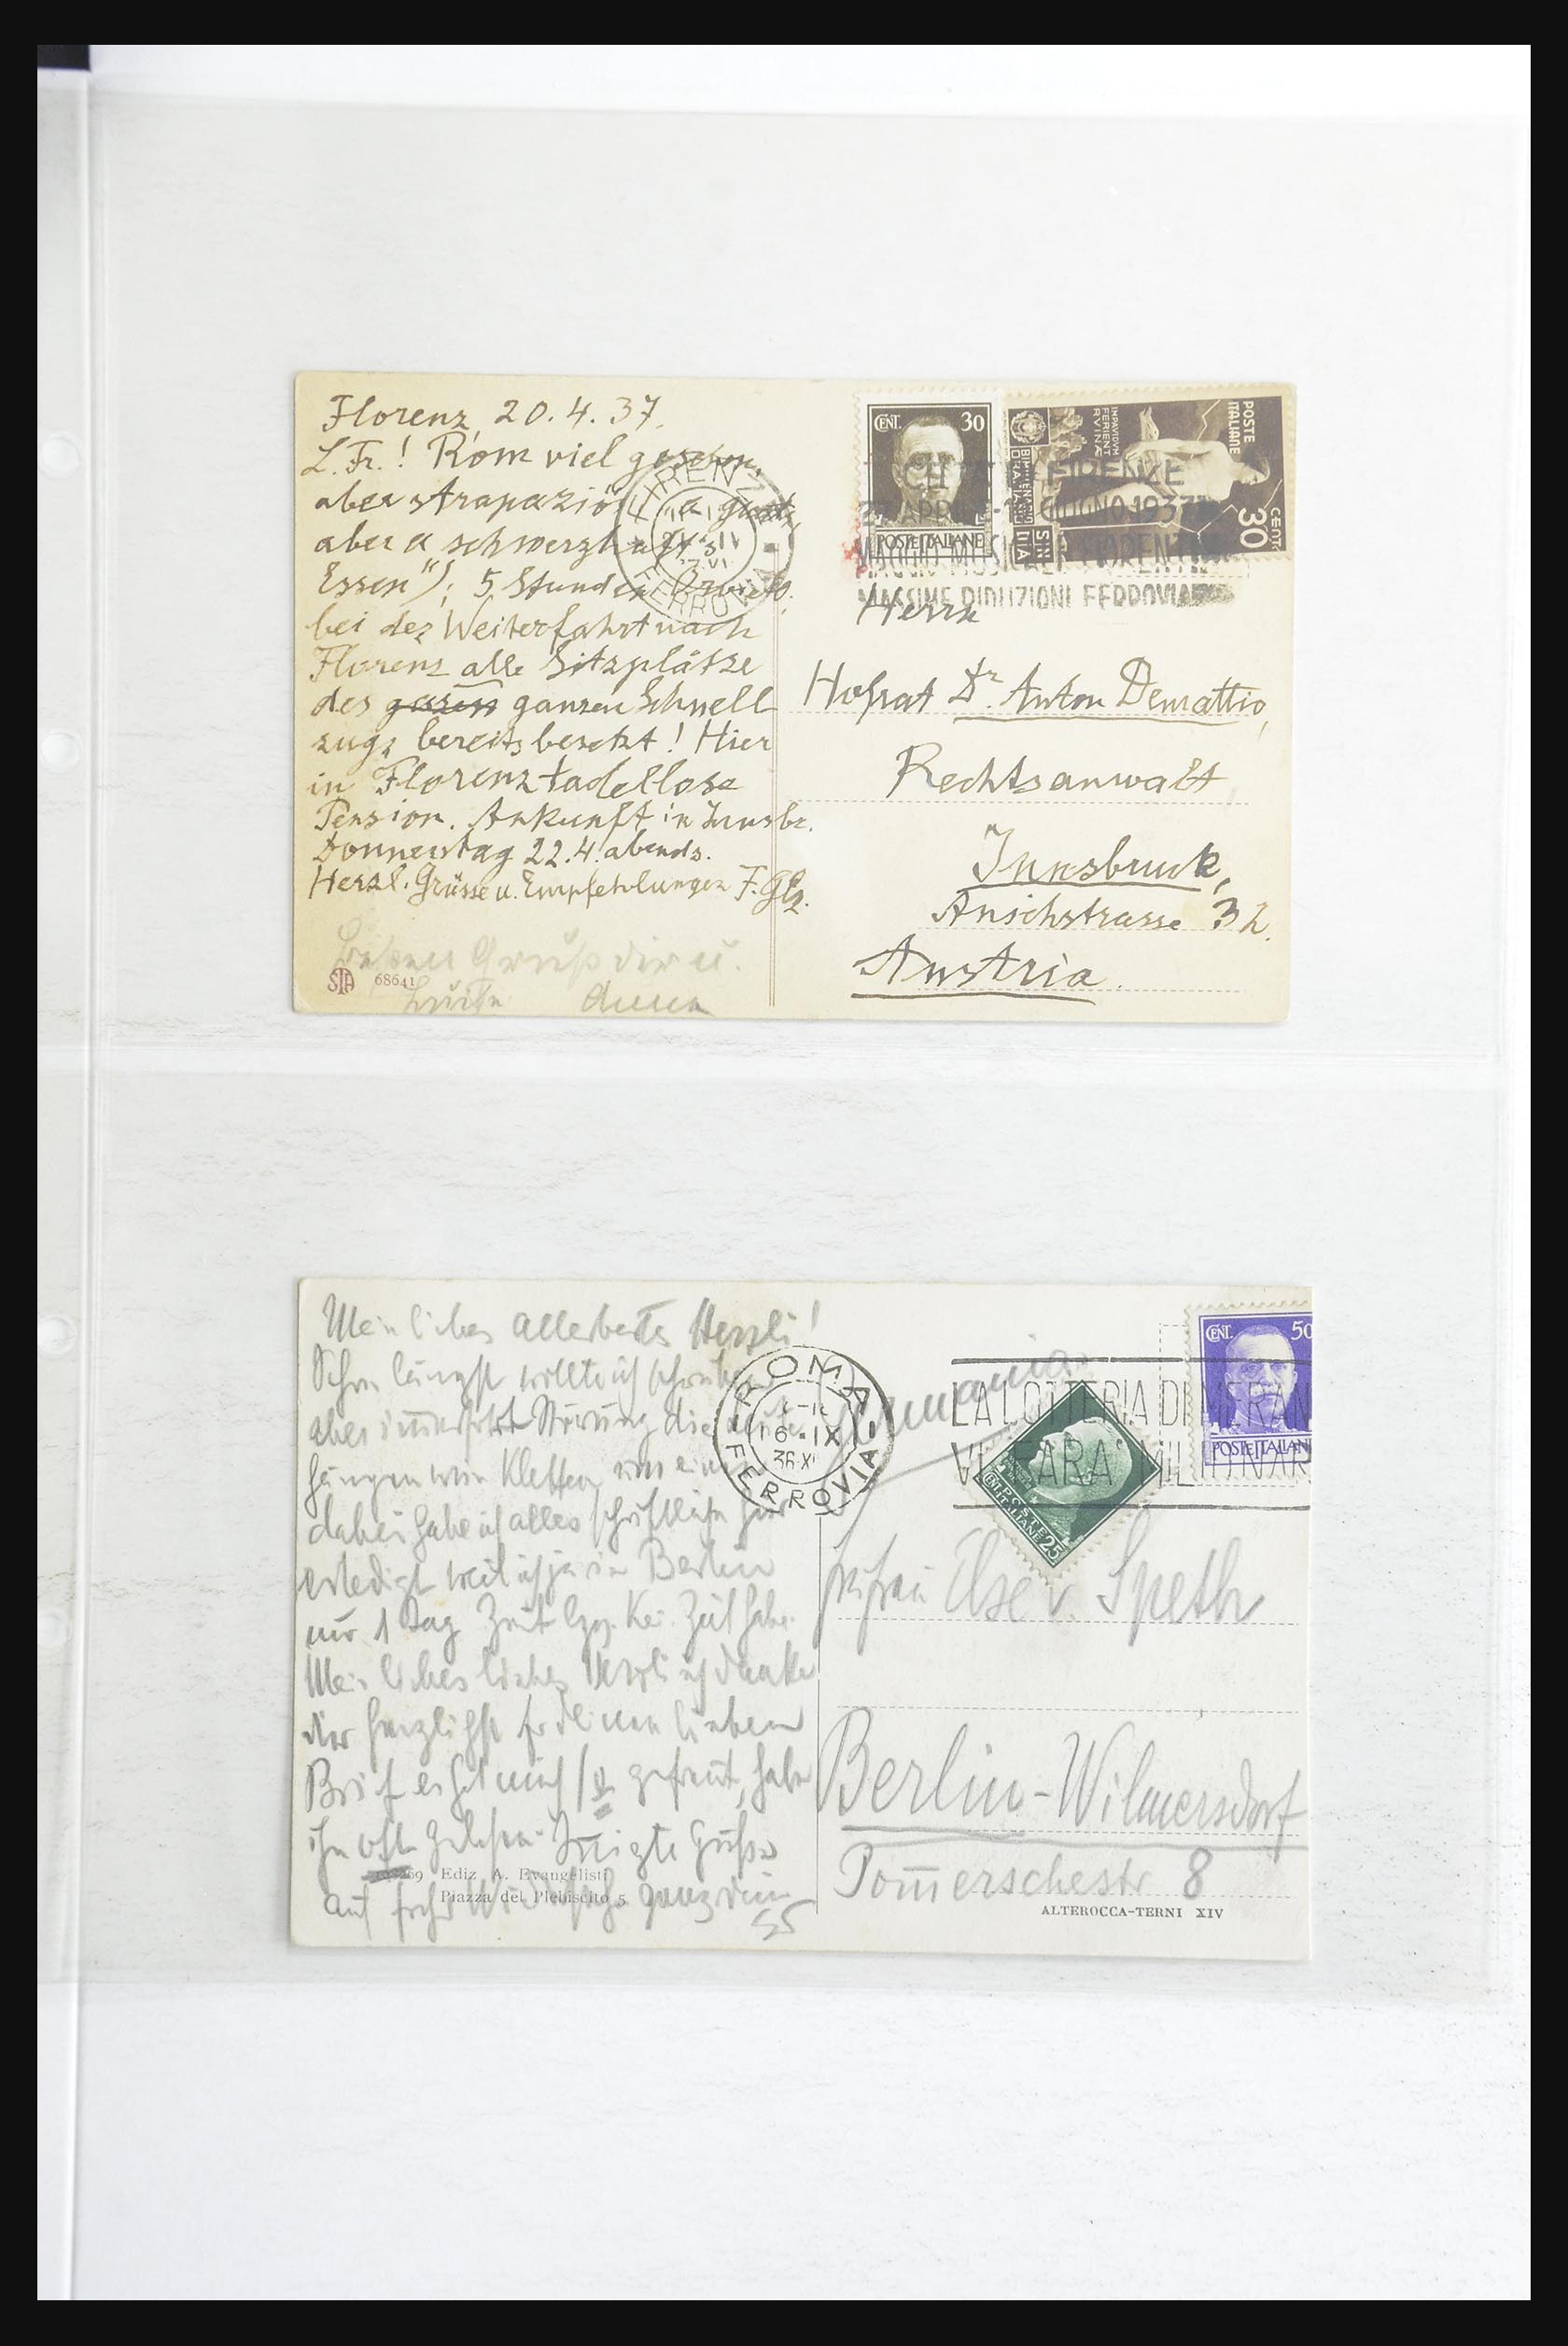 Florenz, 20.4.37.
L. Fr.! Rom viel gesehen,
aber strapaziös
aber a schwerzhaft
Essen"); 5 Stunden Orvieto,
bei der Weiterfahrt nach
Florenz alle Sitzplätze
des ganzen Schnell
zugs bereits besetzt! Hier
in Florenz tadellose
Pension. Ankunft in Innsbr.
Donnerstag 22.4. abends.
Herzl. Grüsse u. Empfehlungen F. Glz.
Lieben Gruß dir u.
Anna
STA 68641
FIRENZE
FERROVIA
CENT. 30
POSTE ITALIANE
POSTE ITALIANE
CENT. 30
BIMILLENARIO ORAZIANO
FIRENZE
APRILE - GIUGNO 1937
MAGGIO MUSICALE FIORENTINO
MASSIME RIDUZIONI FERROVIARIE
Herrn
Hofrat Dr. Anton Demattio,
Rechtsanwalt
Innsbruck,
Anichstrasse 32.
Austria.
Mein liebes allerbestes Herzli!
Schon längst wollte ich schreiben
aber immerfort Störung die Leute
hängen wie Kletten an einem
dabei habe ich alles schriftliche hier
erledigt weil ich ja in Berlin
nur 1 Tag Zeit bzw. kei. Zeit habe.
Mein liebes liebes Herzli ich danke
dir herzlichst für deinen lieben
Brief er hat mich so gefreut, habe
ihn oft gelesen. Innigste Grüße
Auf frohes Wiedersehen ganz dein
69 Ediz. A. Evangelisti
Piazza del Plebiscito 5
ROMA
16.IX
36.XI
FERROVIA
Germania
CENT. 50
POSTE ITALIAN
POSTE ITALIANE
CENT. 25
LA LOTTERIA DI MERAN
VI FARÀ MILIONAR
Freifrau Else v. Speth
Berlin-Wilmersdorf
Pom̄erschestr 8
ALTEROCCA-TERNI XIV